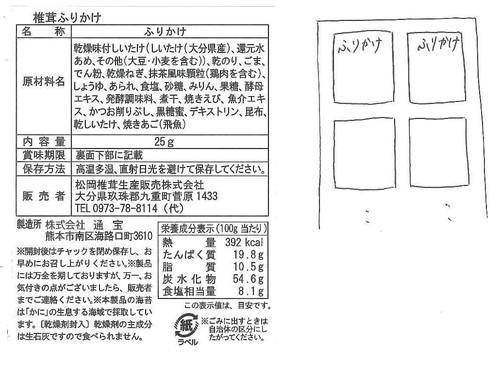 椎茸ふりかけ
名 称 ふりかけ
原材料名 乾燥味付しいたけ(しいたけ(大分県産)、還元水
あめ、その他(大豆・小麦を含む))、乾のり、ごま、
でん粉、乾燥ねぎ、抹茶風味顆粒(鶏肉を含む)、
しょうゆ、あられ、食塩、砂糖、みりん、果糖、酵母
エキス、発酵調味料、煮干、焼きえび、魚介エキ
ス、かつお削りぶし、黒糖蜜、デキストリン、昆布、
乾しいたけ、焼きあご(飛魚)
内 容 量 25g
賞味期限 裏面下部に記載
保存方法 高温多湿、直射日光を避けて保存してください。
販 売 者 松岡椎茸生産販売株式会社
大分県玖珠郡九重町菅原1433
TEL 0973-78-8114(代)
製造所 株式会社 通 宝
熊本市南区海路口町3610
※開封後はチャックを閉め保存し、お
早めにお召し上がりください。※製品
には万全を期しておりますが、万一、お
気付きの点がございましたら、販売者
までご連絡ください。※本製品の海苔
は「かに」の生息する海域で採取してい
ます。〔乾燥剤封入〕乾燥剤の主成分
は生石灰ですので食べられません。
栄養成分表示(100g当たり)
熱 量 392kcal
たんぱく質 19.8g
脂 質 10.5g
炭水化物 54.6g
食塩相当量 8.1g
この表示値は、目安です。
紙
ラベル
※ごみに出すときは
自治体の区分にし
たがってください。
ふりかけ
ふりかけ